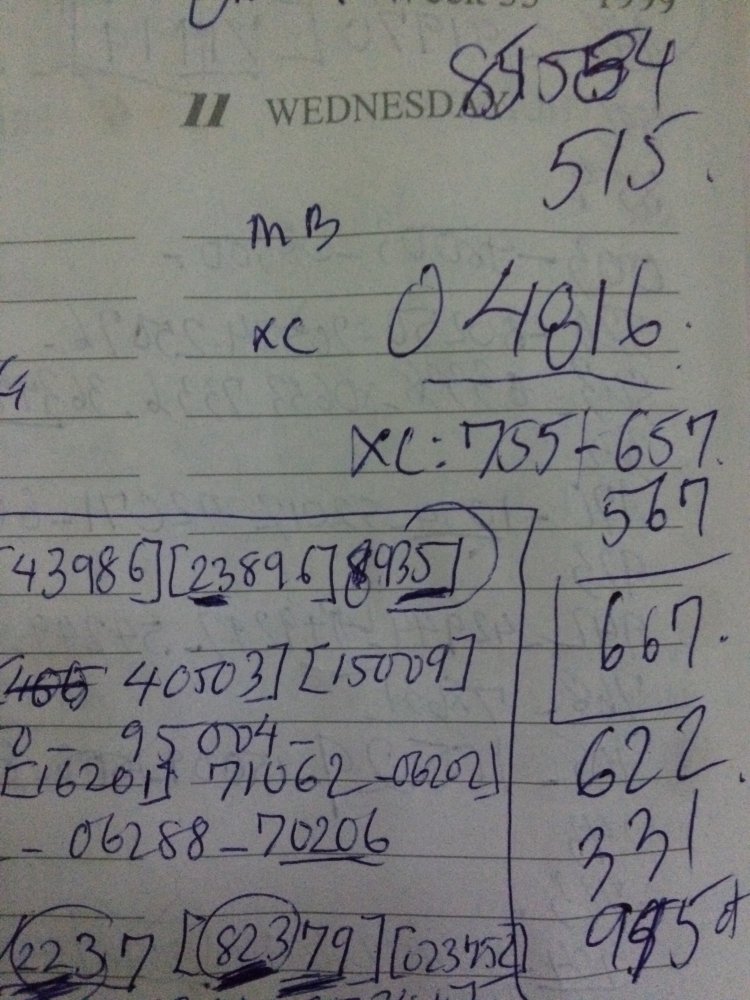 1999
11 WEDNESDAY
515.
MB
XC 04816.
XC: 755+657.
567
[43986] [23896] 8935]
667.
40503] [15009]
0 - 95004-
[16201] 71062 -06202]
622.
- 06288 - 70206
331
2237 [82379] [023752]